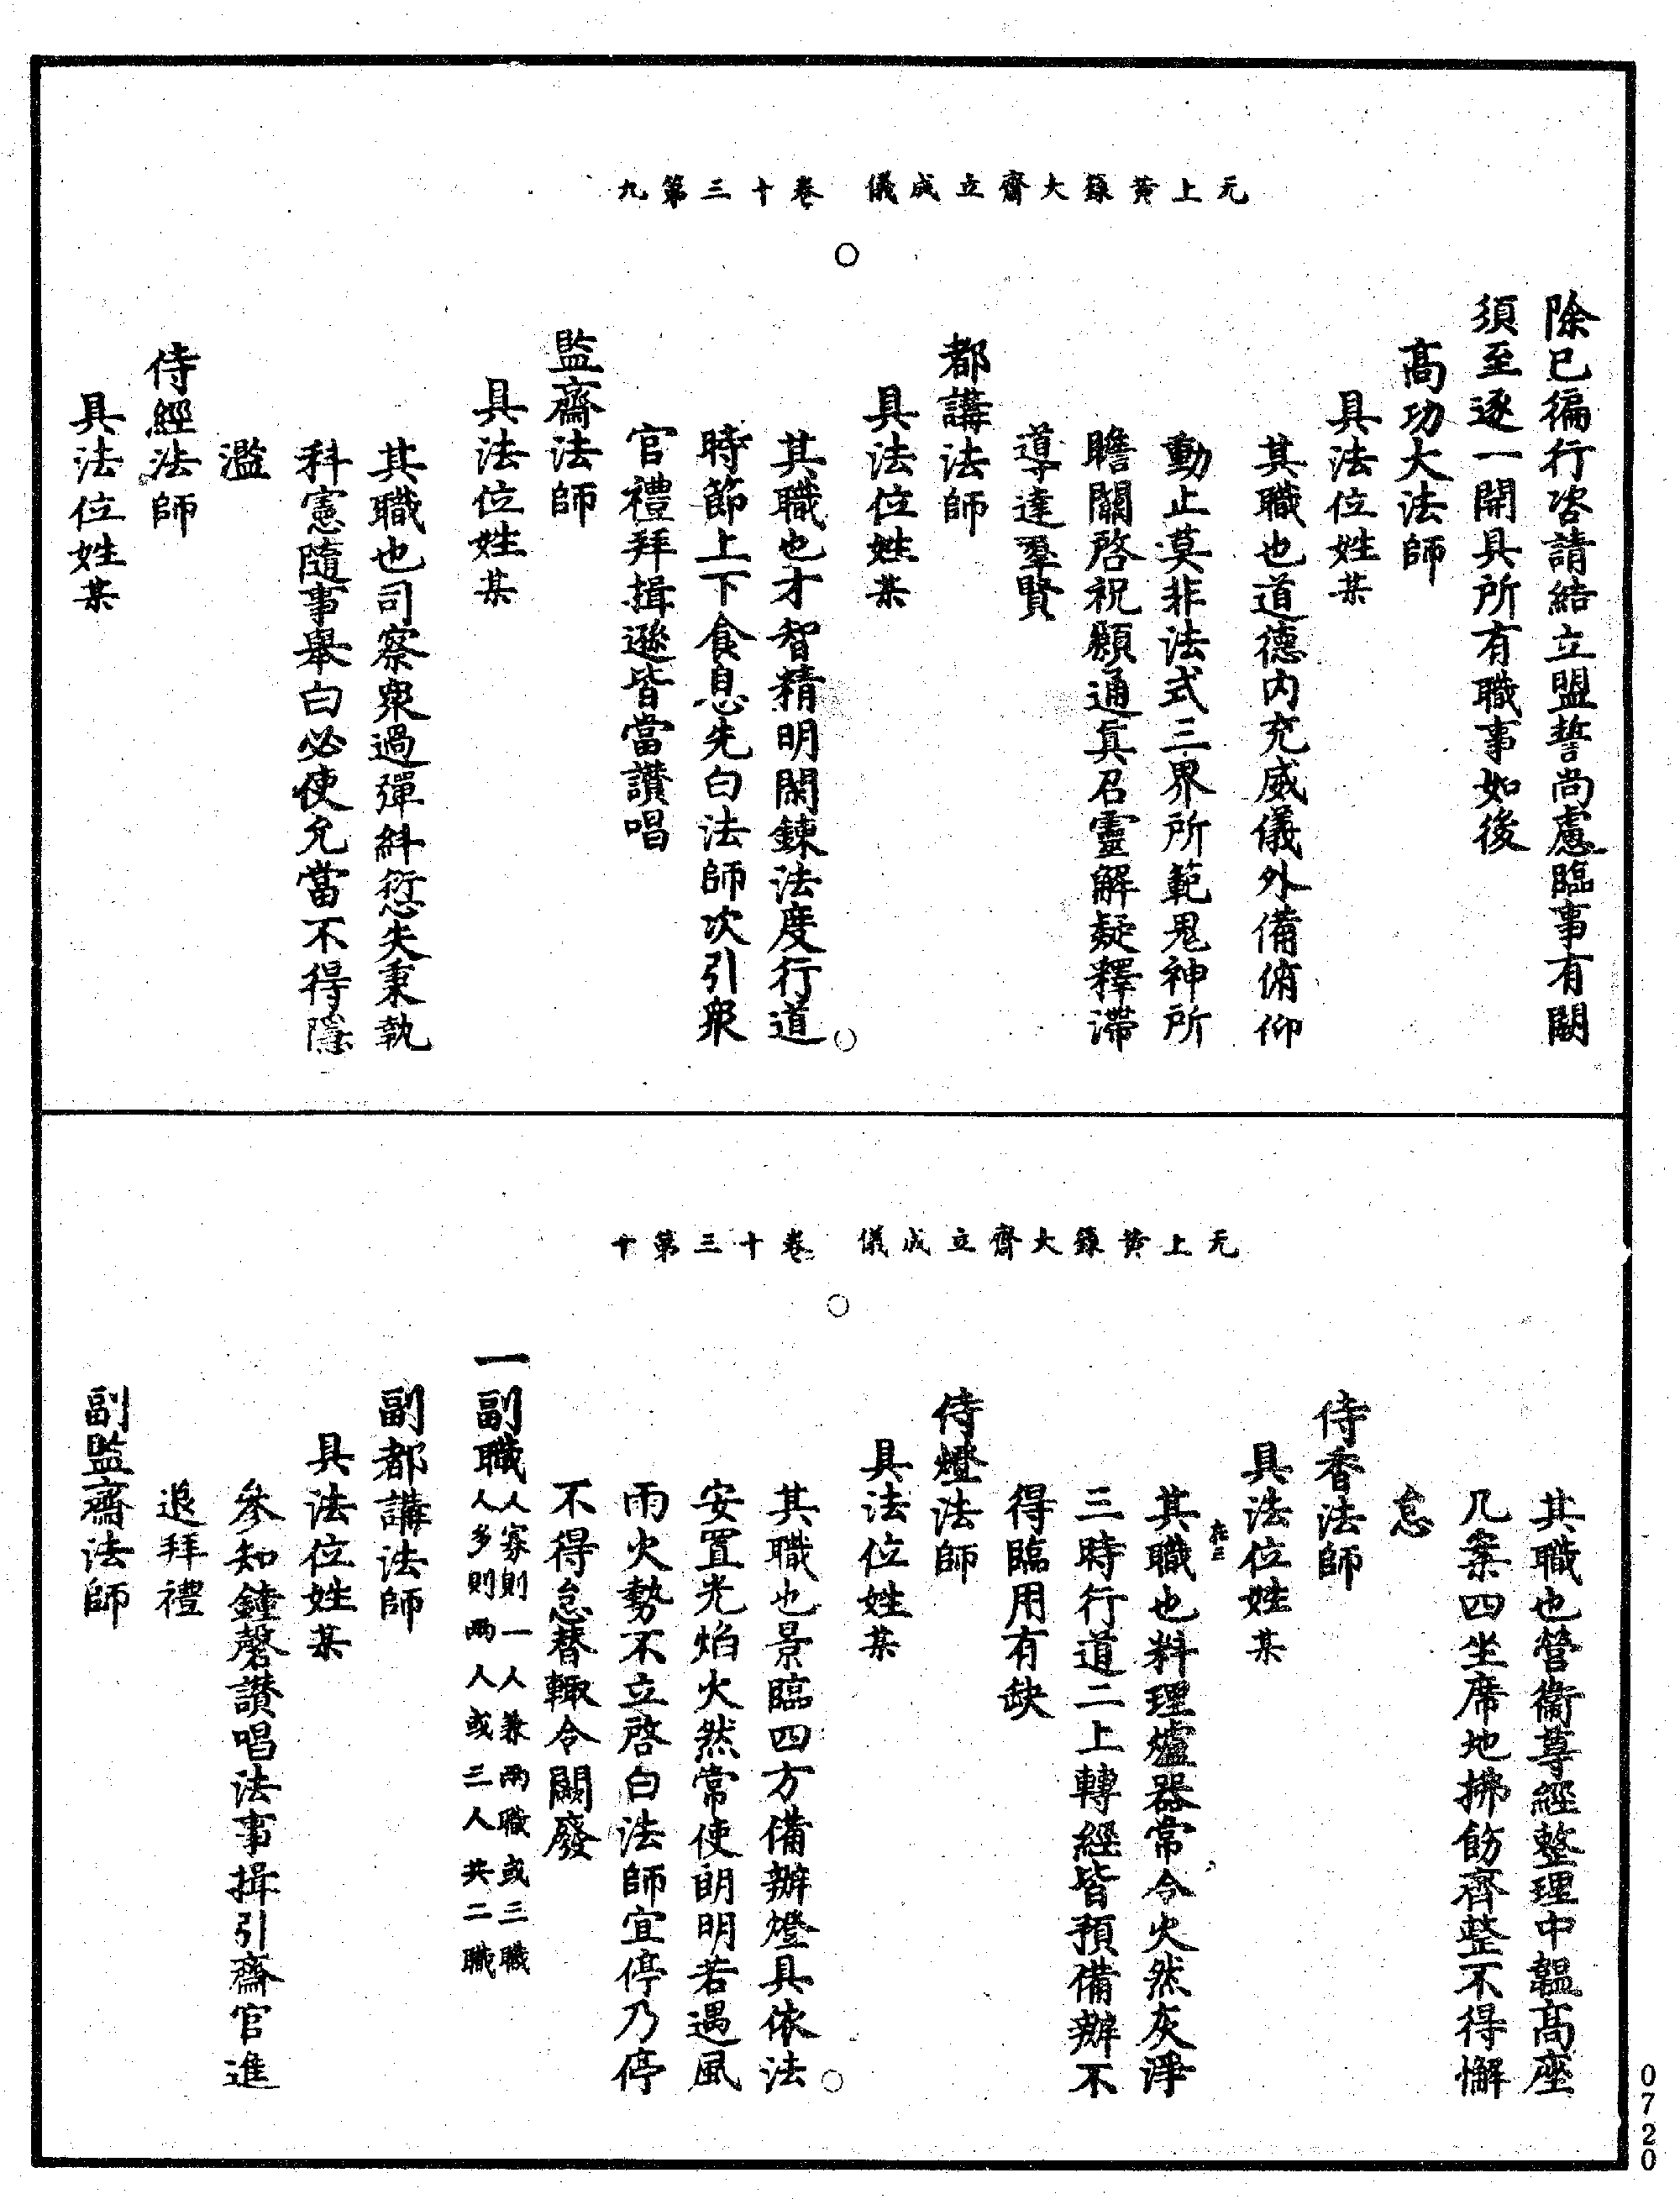 无上黃籙大齋立成儀　卷十三第九
除已徧行咨請結立盟誓尚慮臨事有闕
須至逐一開具所有職事如後
高功大法師
具法位姓某
其職也道德內充威儀外備俯仰
動止莫非法式三界所範鬼神所
瞻關啓祝願通真召靈解疑釋滯
導達羣賢
都講法師
具法位姓某
其職也才智精明閑鍊法度行道
時節上下食息先白法師次引衆
官禮拜揖遜皆當讃唱
監齋法師
具法位姓某
其職也司察衆過彈糾愆失秉執
科憲隨事舉白必使允當不得隱
濫
侍經法師
具法位姓某
无上黃籙大齋立成儀　卷十三第十
其職也營衞尊經整理中韞高座
几案四坐席地拂飭齊整不得懈
怠
侍香法師
具法位姓某
其職也料理爐器常令火然灰淨
三時行道二上轉經皆預備辦不
得臨用有缺
侍燈法師
具法位姓某
其職也景臨四方備辦燈具依法
安置光焰火然常使朗明若遇風
雨火勢不立啓白法師宜停乃停
不得怠替輙令闕廢
一副職人寡則一人兼兩職或三職
人多則兩人或三人共二職
副都講法師
具法位姓某
參知鐘磬讃唱法事揖引齋官進
退拜禮
副監齋法師
0720